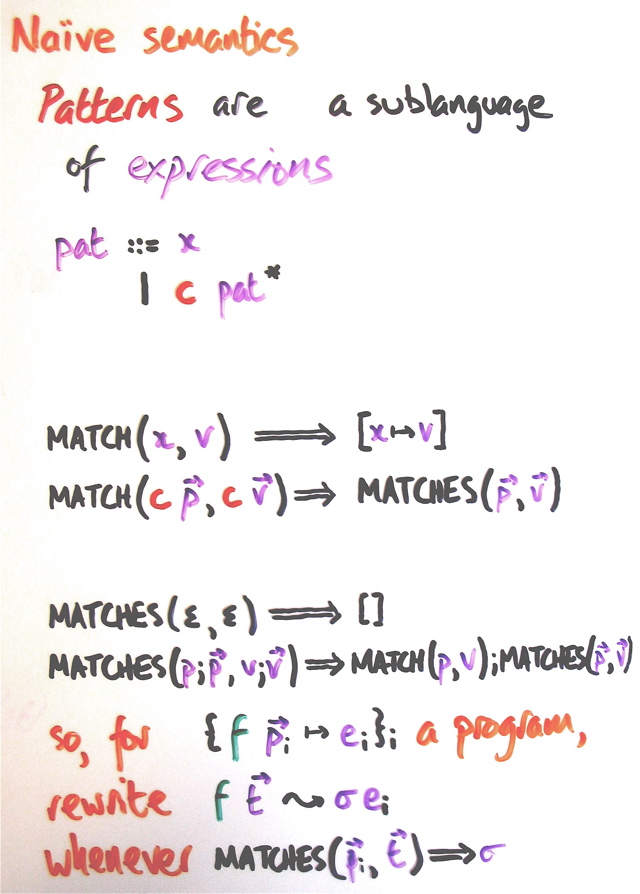 Naïve semantics
Patterns are a sublanguage
of expressions
pat ::= x
| c pat*
MATCH(x, v) ⟹ [x↦v]
MATCH(c p⃗, c v⃗) ⟹ MATCHES(p⃗, v⃗)
MATCHES(ε, ε) ⟹ []
MATCHES(p;p⃗, v;v⃗) ⟹ MATCH(p,v);MATCHES(p⃗,v⃗)
so, for {f p⃗ᵢ ↦ eᵢ}ᵢ a program,
rewrite f t⃗ ⤳ σeᵢ
whenever MATCHES(p⃗ᵢ, t⃗) ⟹ σ